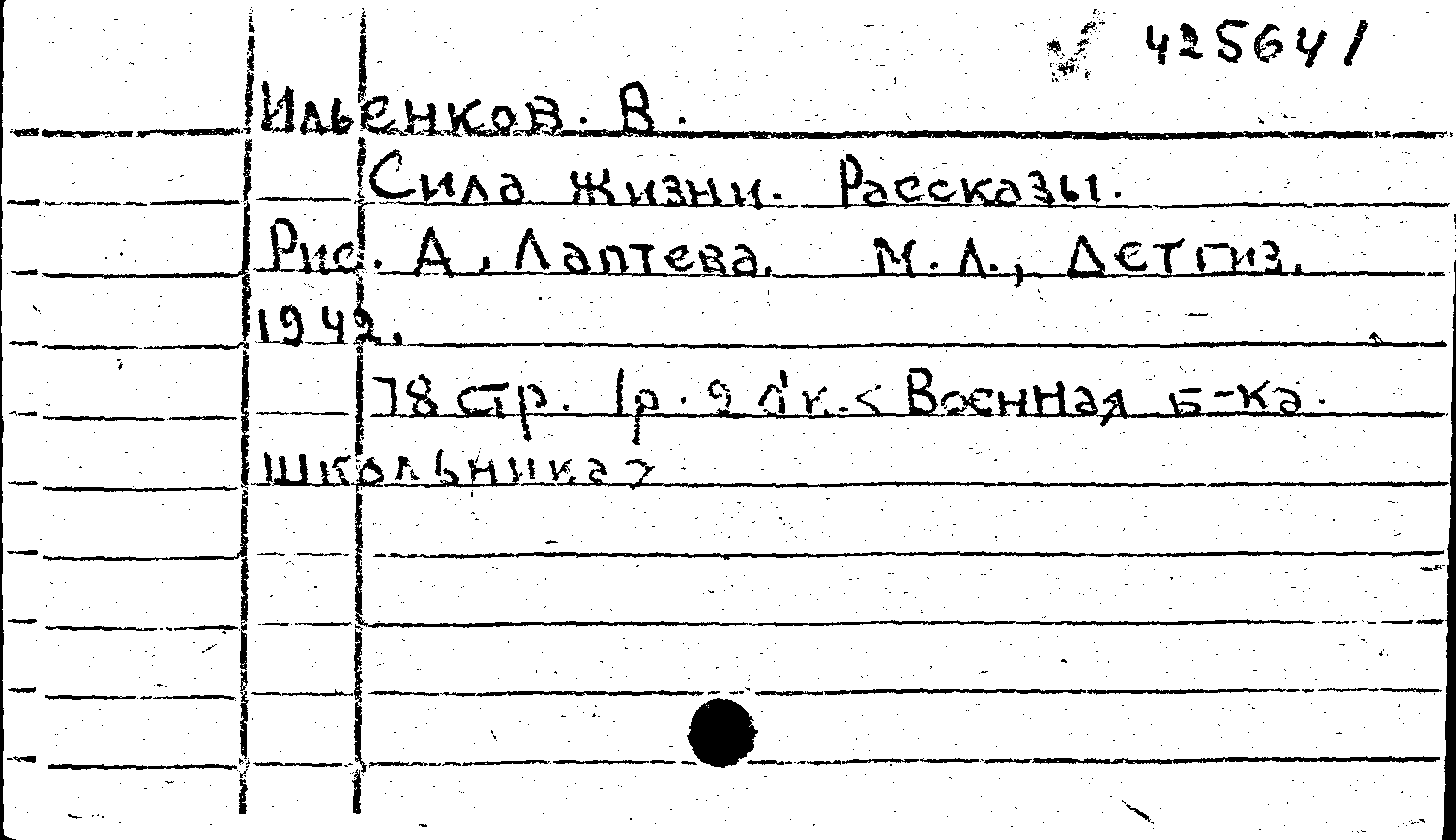 42564 /
Ильенков. В.
Сила жизни. Рассказы.
Рис. А. Лаптева. М.Л., Детгиз.
1942.
78 стр. 1р. <Военная б-ка.
школьника>